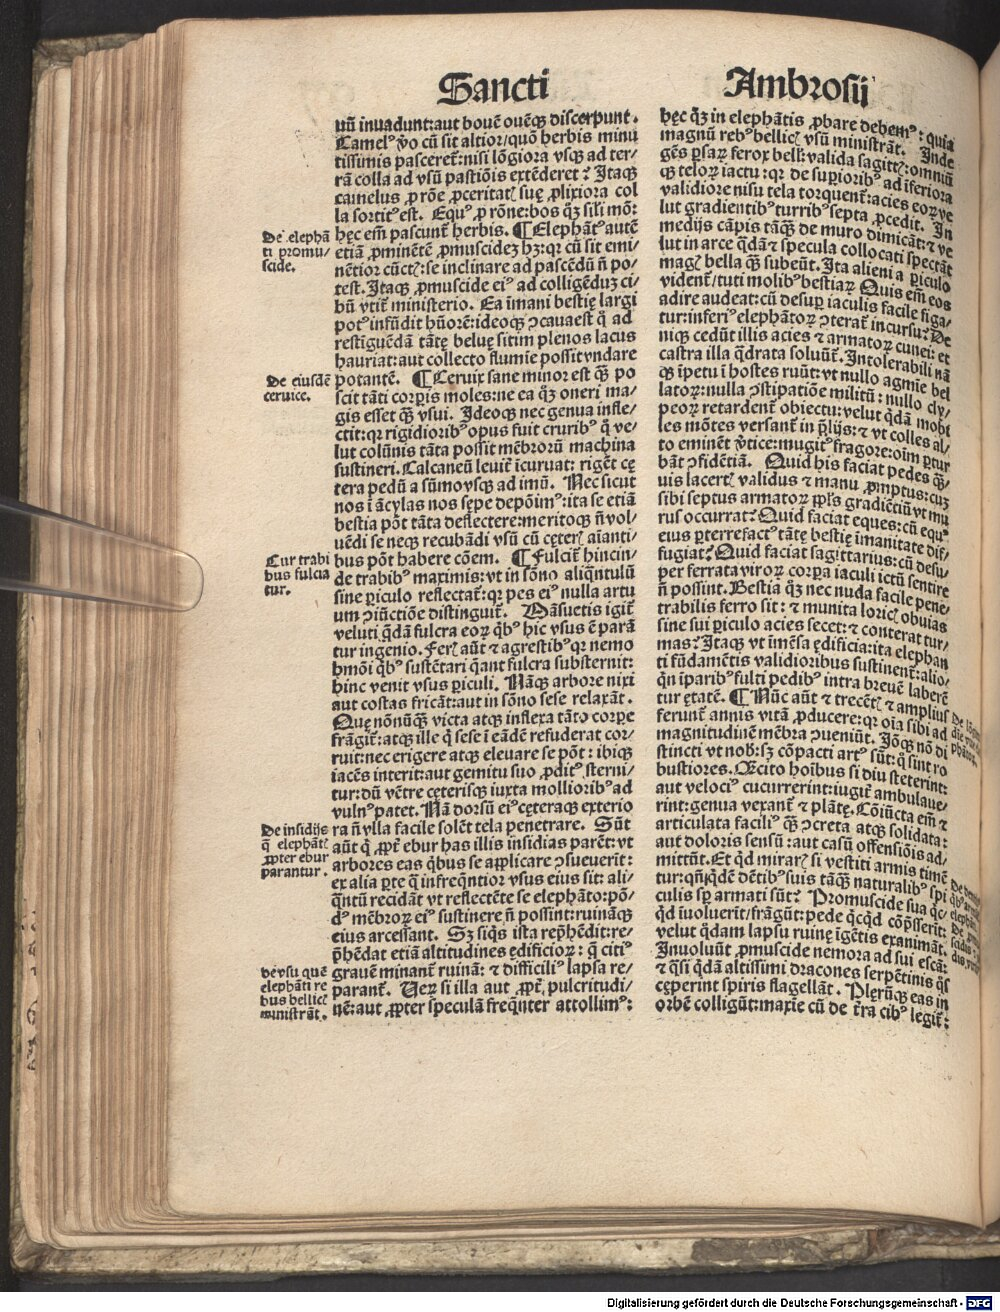 Sancti
Ambrosij
uū inuadunt:aut bouē ouēqꝫ discerpunt.
Camelꝰ ꝟo cū sit altior/quō herbis minu
tissimis pasceret̄:nisi lōgiora vsqꝫ ad ter/
rā colla ad vsū pastiōis extēderet? Itaqꝫ
camelus ꝓ rōe ꝓceritatꝭ suę ꝓlixiora col
la sortitꝰ est. Equꝰ ꝓ rōne:bos qꝫ sili mō:
hęc em̄ pascunt̄ herbis. ¶ Elephātꝰ autē
etiā ꝓminētē ꝓmuscidez hꝫ:qꝛ cū sit emi/
nētior cūctꝭ:se inclinare ad pascēdū ñ po/
test. Itaqꝫ ꝓmuscide eiꝰ ad colligēduꝫ ci/
bū vtit̄ ministerio. Ea īmani bestię largi
potꝰ infūdit hūorē:ideoqꝫ ꝯcaua est q̄ ad
restiguēdā tātę beluę sitim plenos lacus
hauriat:aut collecto flumie possit vndare
potantē. ¶ Ceruix sane minor est qꝙ̄ po
scit tāti corꝑis moles:ne ea qꝫ oneri ma/
gis esset qꝙ̄ vsui. Ideoqꝫ nec genua infle/
ctit:qꝛ rigidioribꝰ opus fuit cruribꝰ q̄ ve/
lut colūnis tāta possit mēbrorū machina
sustineri. Calcaneū leuit̄ icuruat: rigēt cę
tera pedū a sūmo vsqꝫ ad imū. Nec sicut
nos i ācylas nos sępe depōimꝰ:ita se etiā
bestia pōt tāta deflectere:meritoqꝫ ñ vol/
uēdi se neqꝫ recubādi vsū cū cęterꝭ aianti/
bus pōt habere cōem. ¶ Fulcit̄ hincin/
de trabibꝰ maximis:vt in sōno aliq̄ntulū
sine ꝑiculo reflectat̄:qꝛ pes eiꝰ nulla artu
um ꝯiūctiōe distinguit̄. Māsuetis igit̄
veluti q̄dā fulcra eoꝝ q̄bꝰ hic vsus ē parā
tur ingenio. Ferꝭ aūt ⁊ agrestibꝰ qꝛ nemo
hmōi q̄bꝰ sustētari q̄ant fulcra substernit:
hinc venit vsus ꝑiculi. Nāqꝫ arbore nixi
aut costas fricāt:aut in sōno sese relaxāt.
Quę nōnūqꝙ̄ victa atqꝫ inflexa tāto corꝑe
frāgit̄:atqꝫ ille q̄ sese i eādē refuderat cor/
ruit:nec erigere atqꝫ eleuare se pōt: ibiqꝫ
iacēs interit:aut gemitu suo ꝓditꝰ sterni/
tur:dū vētre cęterisqꝫ iuxta mollioribꝰ ad
vulnꝰ patet. Nā dorsū eiꝰ cęteraqꝫ exterio
ra ñ vlla facile solēt tela penetrare. Sūt
aūt q̄ ꝓpt̄ ebur has illis insidias parēt:vt
arbores eas q̄bus se applicare ꝯsueuerīt:
ex alia ꝑte q̄ infreq̄ntior vsus eius sit: ali/
q̄ntū recidāt vt reflectēte se elephāto:pō/
dꝰ mēbroꝝ eiꝰ sustinere ñ possint:ruināqꝫ
eius arcessant. Sꝫ siq̄s ista rep̄hēdit:re/
p̄hēdat etiā altitudines ędificioꝝ: q̄ citiꝰ
grauē minant̄ ruinā: ⁊ difficiliꝰ lapsa re/
parant̄. Ueꝝ si illa aut ꝓpt̄ pulcritudi/
nē:aut ꝓpter speculā freq̄nter attollimꝰ:
hęc qꝫ in elephātis ꝓbare debemꝰ: quia
magnū rebꝰ bellicꝭ vsū ministrāt. Inde
gēs ꝑsaꝝ ferox bellꝭ:valida sagittꝭ:omniū
qꝫ teloꝝ iactu:qꝛ de suꝑioribꝰ ad iferiora
validiore nisu tela torquent̄:acies eoꝝ ve
lut gradientibꝰ turribꝰ septa ꝓcedit. In
medijs cāpis tāqꝙ̄ de muro dimicāt:⁊ ve
lut in arce q̄dā ⁊ specula collocati spectāt
magꝭ bella qꝙ̄ subeūt. Ita alieni a ꝑiculo
vident̄/tuti molibꝰ bestiaꝝ. Quis em̄ eos
adire audeat:cū desuꝑ iaculis facile figa/
tur:inferiꝰ elephātoꝝ ꝯterat̄ incursu? De
niqꝫ cedūt illis acies ⁊ armatoꝝ cunei: et
castra illa q̄drata soluūt̄. Intolerabili nā
qꝫ ipetu i hostes ruūt:vt nullo agmie bel
latoꝝ:nulla ꝯstipatiōe militū: nullo cly/
peoꝝ retardent̄ obiectu:velut q̄dā mobi
les mōtes versant̄ in p̄lijs:⁊ vt colles al/
to eminēt ꝟtice:mugitꝰ fragore:oīm ꝑtur
bāt ꝯfidētiā. Quid his faciat pedes qꝙ̄/
uis lacertꝭ validus ⁊ manu ꝓmptus:cuꝫ
sibi septus armatoꝝ ppl̄s gradiētiū vt mu
rus occurrat? Quid faciat eques:cū equꝰ
eius ꝑterrefactꝰ tātę bestię imanitate dif/
fugiat? Quid faciat sagittarius:cū desu/
per ferrata viroꝝ corꝑa iaculi ictū sentire
ñ possint. Bestia qꝫ nec nuda facile pene/
trabilis ferro sit: ⁊ munita loricꝭ obuias
sine sui ꝑiculo acies secet:⁊ conterat tur/
mas? Itaqꝫ vt imēsa ędificia:ita elephan
ti fūdamētis validioribus sustinent̄:alio/
qn iparibꝰ fulti pedibꝰ intra breuē laberē
tur ętatē. ¶ Nūc aūt ⁊ trecētꝭ ⁊ amplius
ferunt̄ annis vitā ꝓducere:qꝛ oia sibi ad
magnitudinē mēbra ꝯueniūt. Iōqꝫ nō di
stincti vt nobꝭ:sꝫ cōpacti artꝰ sūt:q̄ sint ro
bustiores. Ecito hoibus si diu steterint:
aut velociꝰ cucurrerint:iugit̄ ambulaue/
rint:genua vexant̄ ⁊ plātę. Cōiūcta em̄ ⁊
articulata faciliꝰ qꝙ̄ ꝯcreta atqꝫ solidata:
aut doloris sensū :aut casū offensiōis ad/
mittūt. Et qd mirarꝭ si vestiti armis timē
tur:qñiq̄dē dētibꝰ suis tāqꝙ̄ naturalibꝰ spi
culis sꝑ armati sūt? Promuscide sua qc/
qd iuoluerit/frāgūt:pede qcqd cōp̄sserit:
velut q̄dam lapsu ruinę igētis exanimāt.
Inuoluūt ꝓmuscide nemora ad sui escā:
⁊ q̄si q̄dā altissimi dracones serpētinis q̄s
cęperint spiris flagellāt. Plerūqꝫ eas in
orbē colligūt:maxīe cū de t̄ra cibꝰ legit̄:
De elephā
ti promu/
scide.
De eiusdē
ceruice.
Cur trabi
bus fulcia
tur.
De insidijs
q̄ elephātꝭ
ꝓpter ebur
parantur.
de vsu quē
elephāti re
bus bellicꝭ
ministrāt.
Digitalisierung gefördert durch die Deutsche Forschungsgemeinschaft - DFG